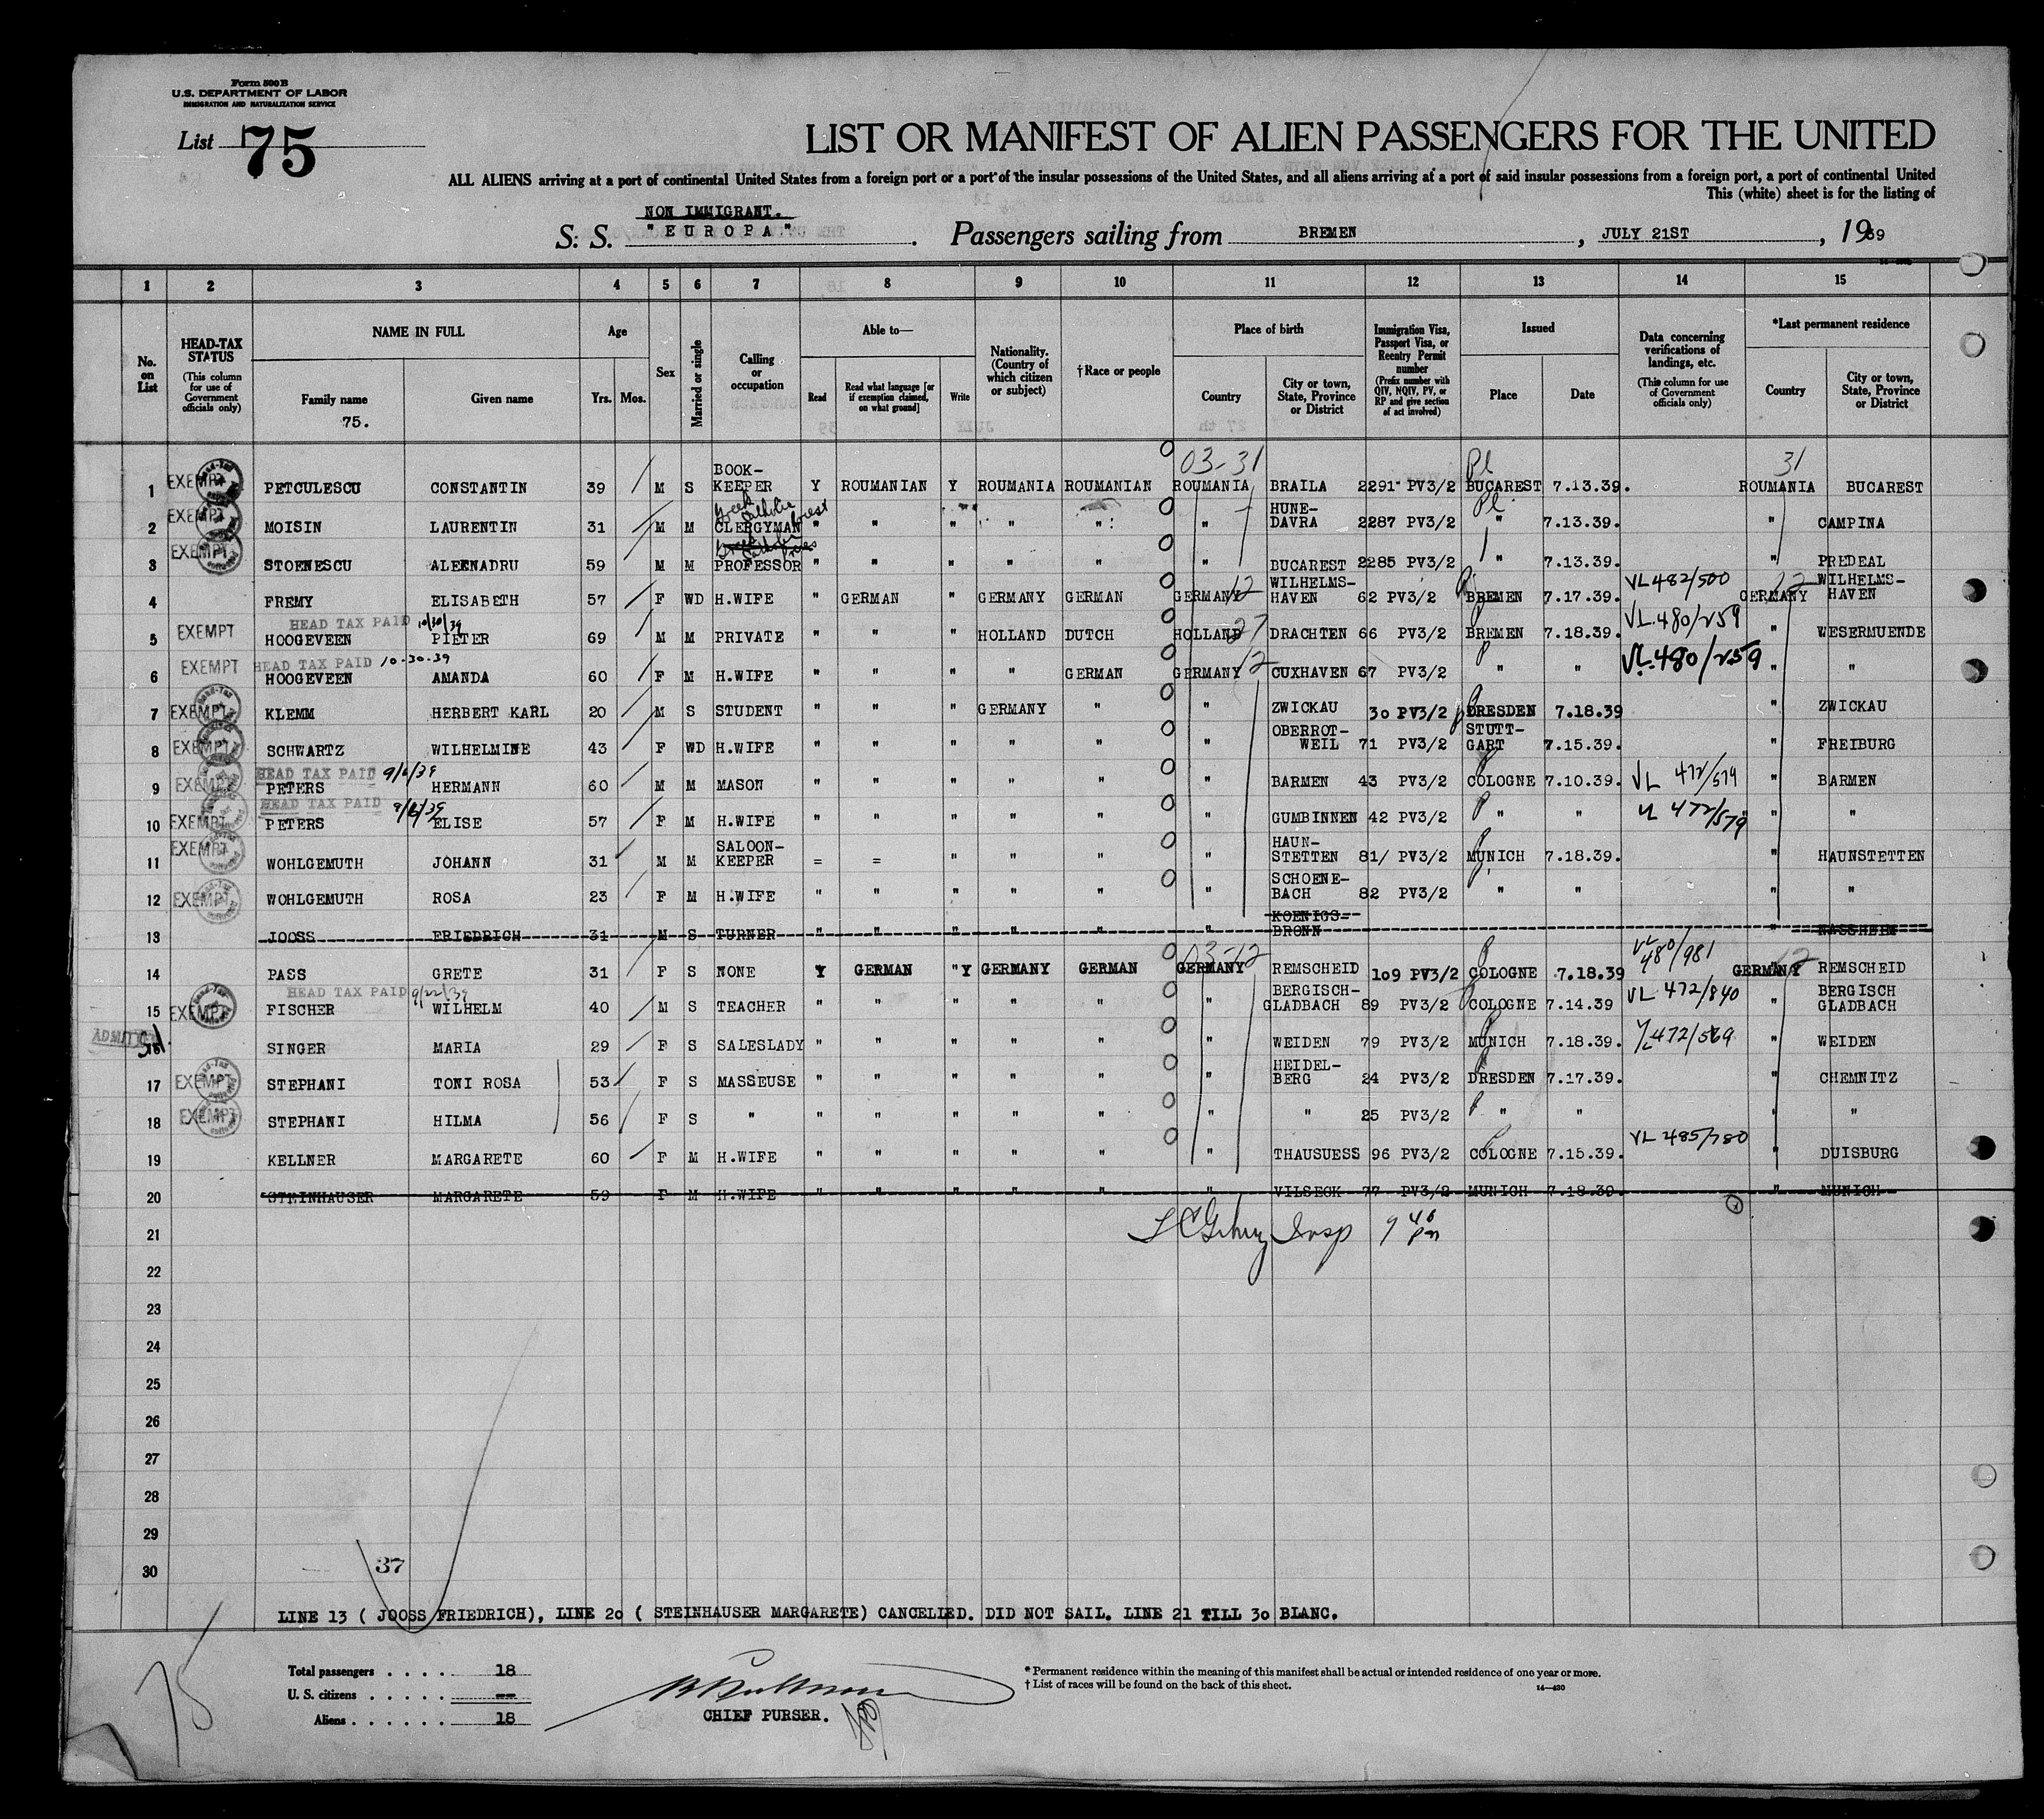 Form 500 B
U.S. DEPARTMENT OF LABOR
IMMIGRATION AND NATURALIZATION SERVICE
List 75
LIST OR MANIFEST OF ALIEN PASSENGERS FOR THE UNITED
ALL ALIENS arriving at a port of continental United States from a foreign port or a port of the insular possessions of the United States, and all aliens arriving at a port of said insular possessions from a foreign port, a port of continental United
This (white) sheet is for the listing of
NON IMMIGRANT.
S. S. "EUROPA" . Passengers sailing from BREMEN , JULY 21ST , 1939
1 2 3 4 5 6 7 8 9 10 11 12 13 14 15
No. on List
HEAD-TAX STATUS (This column for use of Government officials only)
NAME IN FULL
Family name
75.
Given name
Age
Yrs. Mos.
Sex
Married or single
Calling or occupation
Able to—
Read
Read what language [or if exemption claimed, on what ground]
Write
Nationality. (Country of which citizen or subject)
†Race or people
Place of birth
Country
City or town, State, Province or District
Immigration Visa, Passport Visa, or Reentry Permit number (Prefix number with QIV, NQIV, PV, or RP and give section of act involved)
Issued
Place
Date
Data concerning verifications of landings, etc. (This column for use of Government officials only)
*Last permanent residence
Country
City or town, State, Province or District
03-31 Pl 31
1 EXEMPT PETCULESCU CONSTANTIN 39 M S BOOK-KEEPER Y ROUMANIAN Y ROUMANIA ROUMANIAN ROUMANIA BRAILA 2291 PV3/2 BUCAREST 7.13.39. ROUMANIA BUCAREST
Greek Catholic Priest
2 EXEMPT MOISIN LAURENTIN 31 M M CLERGYMAN " " " " " " HUNE-DAVRA 2287 PV3/2 " 7.13.39. " CAMPINA
3 EXEMPT STOENESCU ALEKNADRU 59 M M PROFESSOR " " " " " " BUCAREST 2285 PV3/2 " 7.13.39. " PREDEAL
4 FREMY ELISABETH 57 F WD H.WIFE " GERMAN " GERMANY GERMAN GERMANY 12 WILHELMS-HAVEN 62 PV3/2 BREMEN 7.17.39. VL 482/500 GERMANY 12 WILHELMS-HAVEN
HEAD TAX PAID 10/30/39
5 EXEMPT HOOGEVEEN PIETER 69 M M PRIVATE " " " HOLLAND DUTCH HOLLAND 27 DRACHTEN 66 PV3/2 BREMEN 7.18.39. VL 480/259 " WESERMUENDE
HEAD TAX PAID 10-30-39
6 EXEMPT HOOGEVEEN AMANDA 60 F M H.WIFE " " " " GERMAN GERMANY 12 CUXHAVEN 67 PV3/2 " " VL 480/259 " "
7 EXEMPT KLEMM HERBERT KARL 20 M S STUDENT " " " GERMANY " " ZWICKAU 30 PV3/2 DRESDEN 7.18.39 " ZWICKAU
8 EXEMPT SCHWARTZ WILHELMINE 43 F WD H.WIFE " " " " " " OBERROT-WEIL 71 PV3/2 STUTT-GART 7.15.39. " FREIBURG
HEAD TAX PAID 9/6/39
9 EXEMPT PETERS HERMANN 60 M M MASON " " " " " " BARMEN 43 PV3/2 COLOGNE 7.10.39. VL 472/579 " BARMEN
HEAD TAX PAID 9/6/39
10 EXEMPT PETERS ELISE 57 F M H.WIFE " " " " " " GUMBINNEN 42 PV3/2 " " VL 472/579 " "
11 EXEMPT WOHLGEMUTH JOHANN 31 M M SALOON-KEEPER = = " " " " HAUN-STETTEN 81/ PV3/2 MUNICH 7.18.39. " HAUNSTETTEN
12 EXEMPT WOHLGEMUTH ROSA 23 F M H.WIFE " " " " " " SCHOENE-BACH 82 PV3/2 " " " "
13 JOOSS FRIEDRICH 31 M S TURNER " " " " " " KOENIGS-BRONN " NASSHEIM
03-12
14 PASS GRETE 31 F S NONE Y GERMAN "Y GERMANY GERMAN GERMANY REMSCHEID 109 PV3/2 COLOGNE 7.18.39 VL 480/981 GERMANY 12 REMSCHEID
HEAD TAX PAID 9/22/39
15 EXEMPT FISCHER WILHELM 40 M S TEACHER " " " " " " BERGISCH-GLADBACH 89 PV3/2 COLOGNE 7.14.39 VL 472/840 " BERGISCH GLADBACH
ADMITTED
16 SINGER MARIA 29 F S SALESLADY " " " " " " WEIDEN 79 PV3/2 MUNICH 7.18.39. VL 472/569 " WEIDEN
17 EXEMPT STEPHANI TONI ROSA 53 F S MASSEUSE " " " " " " HEIDEL-BERG 24 PV3/2 DRESDEN 7.17.39. " CHEMNITZ
18 EXEMPT STEPHANI HILMA 56 F S " " " " " " " " 25 PV3/2 " " " "
19 KELLNER MARGARETE 60 F M H.WIFE " " " " " " THAUSUESS 96 PV3/2 COLOGNE 7.15.39. VL 485/780 " DUISBURG
20 STEINHAUSER MARGARETE 59 F M H.WIFE " " " " " " VILSECK 77 PV3/2 MUNICH 7.18.39. " MUNICH
21 Insp 9 40 pm
22
23
24
25
26
27
28
29
30
37
LINE 13 ( JOOSS FRIEDRICH), LINE 20 ( STEINHAUSER MARGARETE) CANCELLED. DID NOT SAIL. LINE 21 TILL 30 BLANC.
75
Total passengers . . . . 18
U. S. citizens . . . . . --
Aliens . . . . . . 18
CHIEF PURSER.
* Permanent residence within the meaning of this manifest shall be actual or intended residence of one year or more.
† List of races will be found on the back of this sheet.
14—430